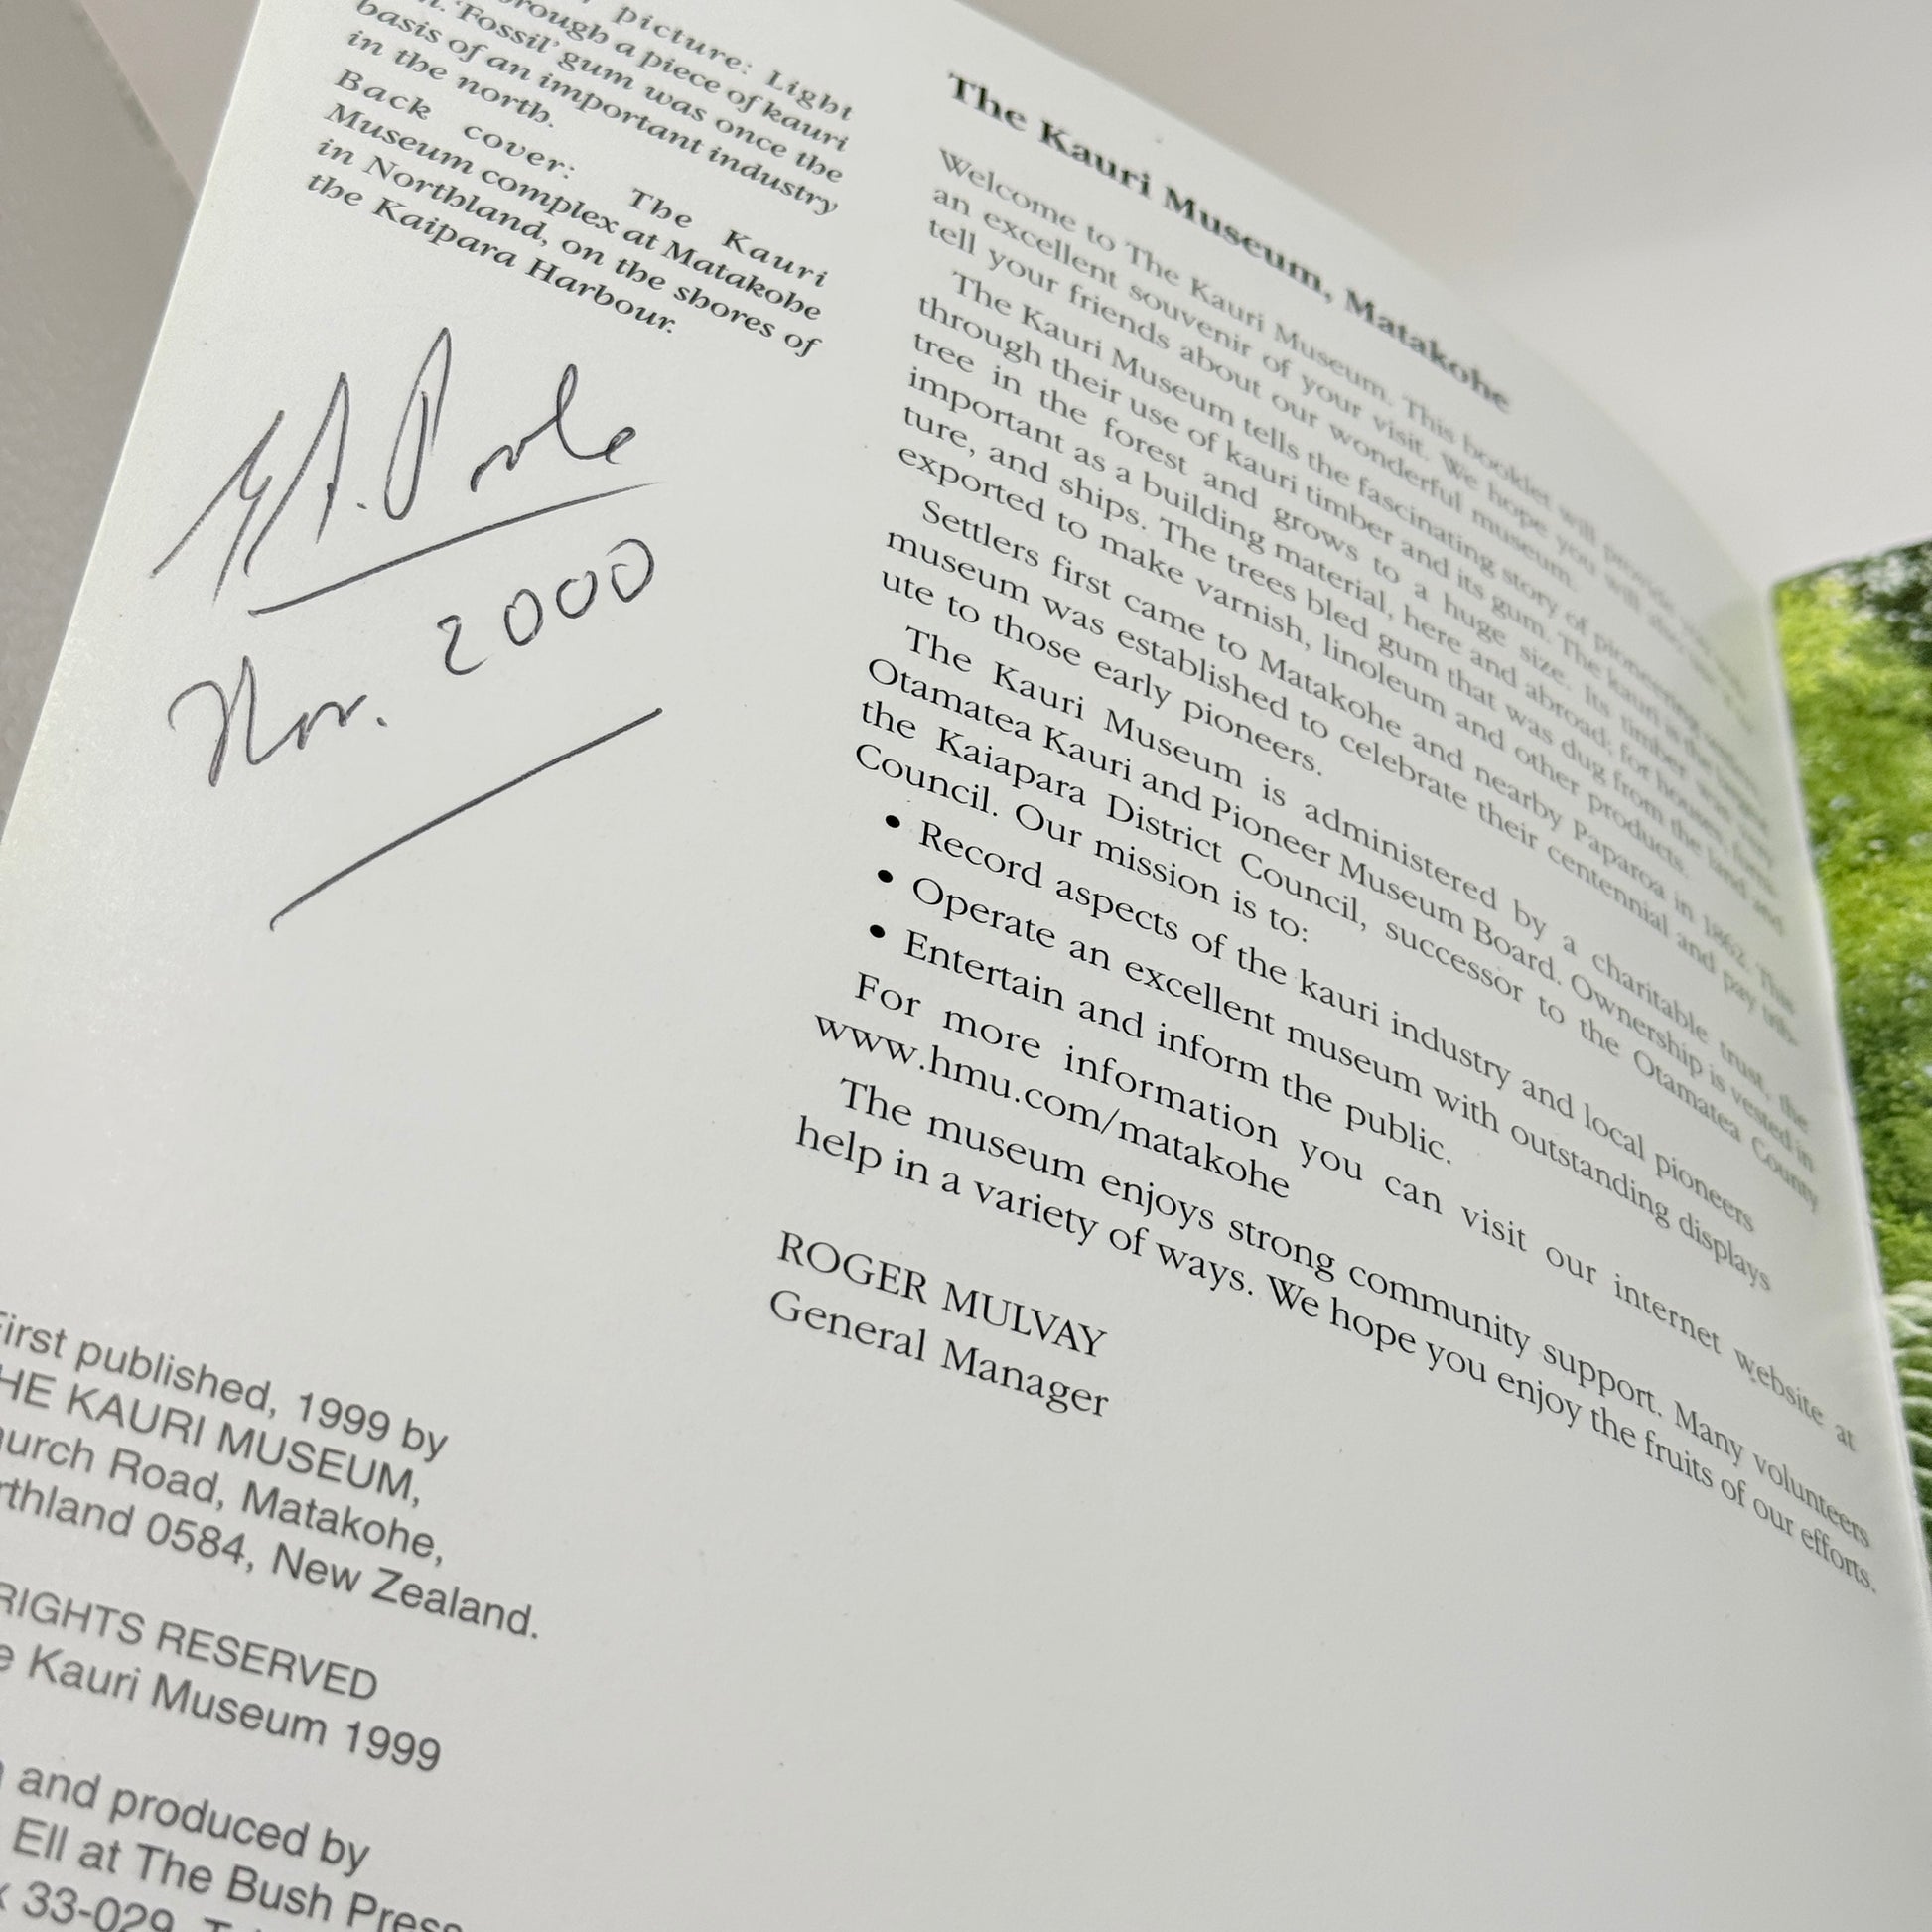 picture: Light
rough a piece of kauri
'Fossil' gum was once the
basis of an important industry
in the north.
Back cover: The Kauri
Museum complex at Matakohe
in Northland, on the shores of
the Kaipara Harbour.
Poole
Nov. 2000
First published, 1999 by
THE KAURI MUSEUM,
Church Road, Matakohe,
Northland 0584, New Zealand.
RIGHTS RESERVED
Kauri Museum 1999
and produced by
Ell at The Bush Press
33-029
The Kauri Museum, Matakohe
Welcome to The Kauri Museum. This booklet will provide
an excellent souvenir of your visit. We hope you will also
tell your friends about our wonderful museum.
The Kauri Museum tells the fascinating story of pioneering
through their use of kauri timber and its gum. The kauri is the largest
tree in the forest and grows to a huge size. Its timber was very
important as a building material, here and abroad; for houses, furni-
ture, and ships. The trees bled gum that was dug from the land and
exported to make varnish, linoleum and other products.
Settlers first came to Matakohe and nearby Paparoa in 1862. This
museum was established to celebrate their centennial and pay trib-
ute to those early pioneers.
The Kauri Museum is administered by a charitable trust, the
Otamatea Kauri and Pioneer Museum Board. Ownership is vested in
the Kaiapara District Council, successor to the Otamatea County
Council. Our mission is to:
• Record aspects of the kauri industry and local pioneers
• Operate an excellent museum with outstanding displays
• Entertain and inform the public.
For more information you can visit our internet website at
www.hmu.com/matakohe
The museum enjoys strong community support. Many volunteers
help in a variety of ways. We hope you enjoy the fruits of our efforts.
ROGER MULVAY
General Manager